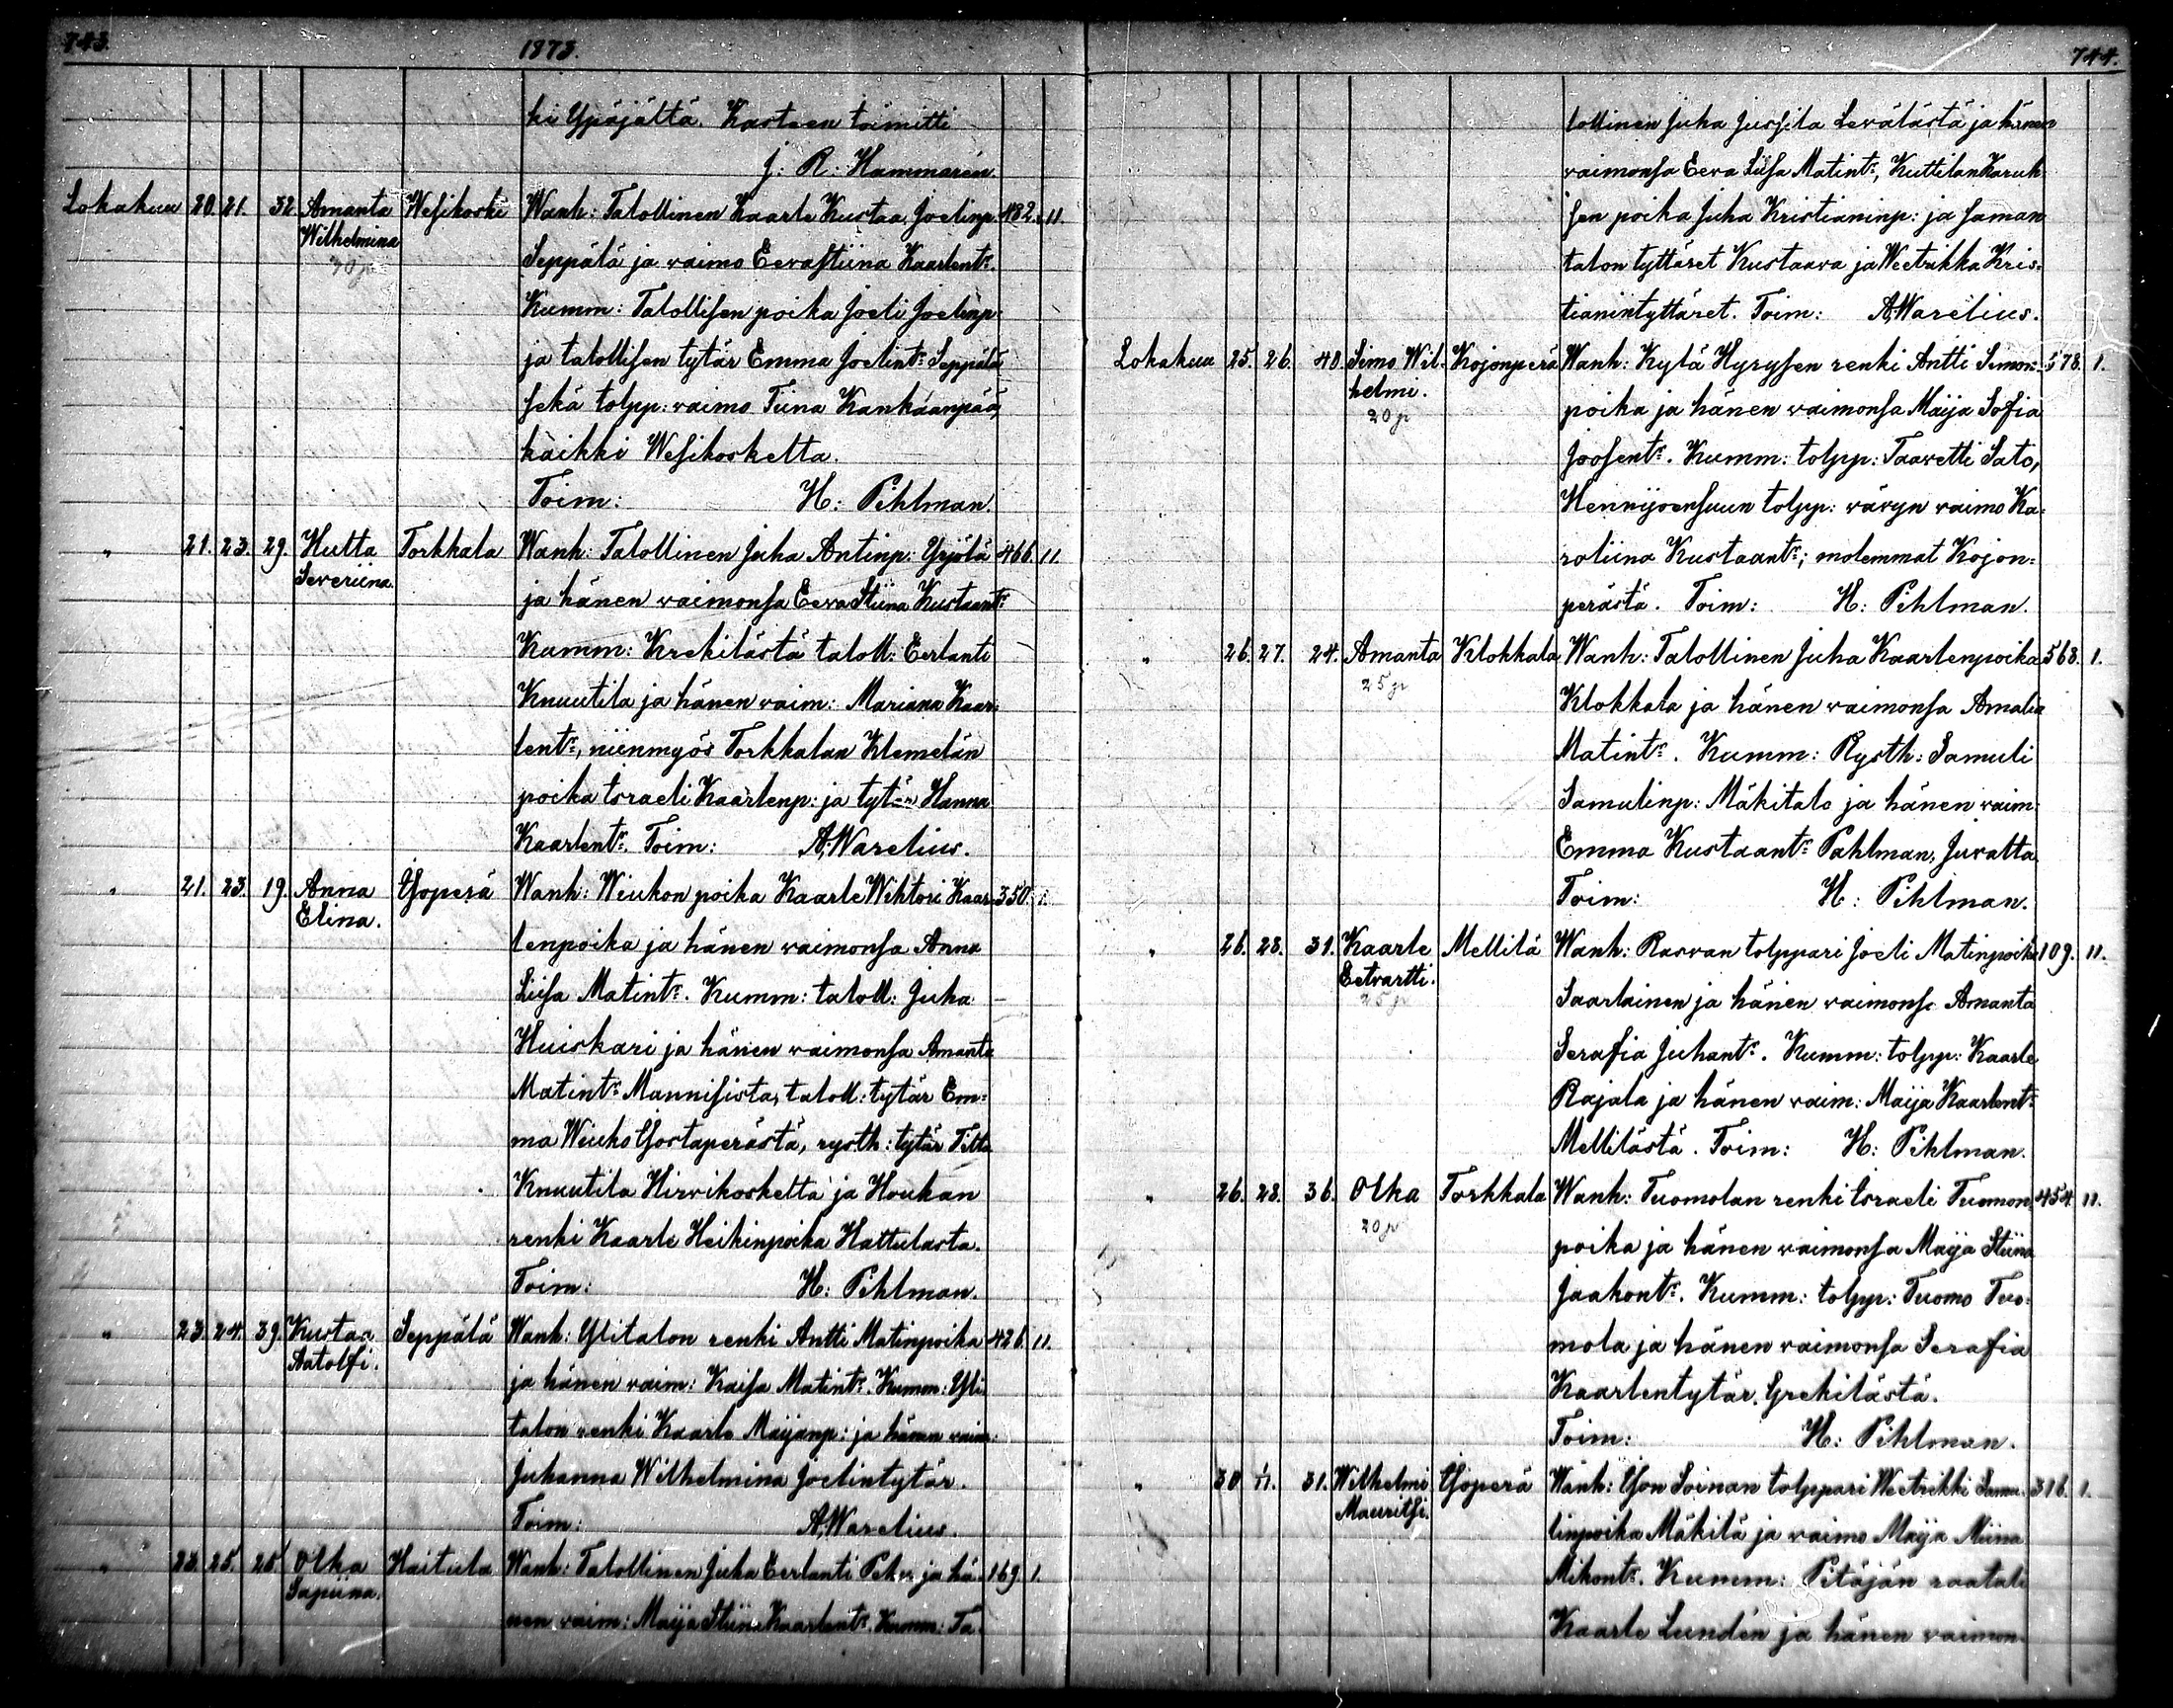 743.
1873.
ki Ypäjältä. Kasteen toimitti
J: R: Hammarén.
Lokakuu 20. 21. 32 Amanta Wesikoski Wanh: Talollinen Kaarle Kustaa Joelinp. 482. 11.
Wilhelmina
30 p
Seppälä ja vaimo Eevastiina Kaarlent:r
Kumm: Talollisen poika Joeli Joelinp:
ja talollisen tytär Emma Joelint:r Seppälä
sekä tolpp: vaimo Tiina Kankaanpää,
kaikki Wesikoskelta.
Toim: H: Pihlman.
" 21. 23. 29. Hulta Torkkala Wanh: Talollinen Juha Antinp: Yrjölä 466. 11.
Severiina.
ja hänen vaimonsa Eeva Stiina Kustaant:r
Kumm: Krekilästä taloll: Eerlanti
Knuutila ja hänen vaim: Mariana Kaar-
lent:r, niinmyös Torkkalan Klemelän
poika Israeli Kaarlenp: ja tytär Hanna
Kaarlent:r. Toim: A. Warelius.
" 21. 23. 19. Anna Yöperä Wanh: Wiukon poika Kaarle Wihtori Kaar- 350. 1.
Elina.
lenpoika ja hänen vaimonsa Anna
Liisa Matint:r. Kumm: taloll: Juha
Huiskari ja hänen vaimonsa Amanta
Matint:r Mannisista, taloll: tytär Em-
ma Wiuko, rysth: tytär
Knuutila Hirvikoskelta ja Houkan
renki Kaarle Heikinpoika Hattulasta.
Toim: H: Pihlman.
" 23. 24. 39. Kustaa Seppälä Wanh: Ylitalon renki Antti Matinpoika 426. 11.
Aatolfi.
ja hänen vaim: Kaisa Matint:r. Kumm: Yli-
talon renki Kaarle Maijanp: ja hänen vaim:
Juhanna Wilhelmina Joelintytär.
Toim: A. Warelius.
" 23. 25. 25 Olka Haitula Wanh: Talollinen Juha Eerlanti ja hä- 169. 1.
Sapiina.
nen vaim: Maija Stiina Kaarlent:r. Kumm: Ta-
744.
lollinen Juha Jussila Levälästä ja hänen
vaimonsa Eeva Liisa Matint:r, Kuttilan Karuk-
sen poika Juha Kristianinp: ja saman
talon tyttäret Kustaava ja Weetrikka Kris-
tianintyttäret. Toim: A. Warelius.
Lokakuu 25. 26. 40. Simo Wil- Kojonperä Wanh: Kylä Hyrysen renki Antti Simon- 578. 1.
helmi.
20 p
poika ja hänen vaimonsa Maija Sofia
Joosent:r. Kumm: tolpp: Taavetti Sato,
Hennijoensuun tolpp: vävyn vaimo Ka-
roliina Kustaant:r; molemmat Kojon-
perästä. Toim: H: Pihlman.
" 26. 27. 24. Amanta Klokkala Wanh: Talollinen Juha Kaarlenpoika 568. 1.
25 p
Klokkala ja hänen vaimonsa Amalia
Matint:r. Kumm: Rysth: Samuli
Samulinp: Mäkitalo ja hänen vaim:
Emma Kustaant:r Pahlman, Juvalta.
Toim: H: Pihlman.
" 26. 28. 31. Kaarle Mellilä Wanh: Rasvan tolppari Joeli Matinpoika 109. 11.
Eetvartti.
25 p
Saarlainen ja hänen vaimonsa Amanta
Serafia Juhant:r. Kumm: tolpp: Kaarle
Rajala ja hänen vaim: Maija Kaarlent:r
Mellilästä. Toim: H: Pihlman.
" 26. 28. 36. Olka Torkkala Wanh: Tuomolan renki Israeli Tuomon- 454. 11.
20 p
poika ja hänen vaimonsa Maija Stiina
Jaakont:r. Kumm: tolpp: Tuomo Tuo-
mola ja hänen vaimonsa Serafia
Kaarlentytär, Grekilästä.
Toim: H: Pihlman.
" 30 31. Wilhelmi Yöperä Wanh: Yön Soinan tolppari Weetrikki Samu- 316. 1.
Mauritsi.
linpoika Mäkilä ja vaimo Maija Miina
Mikont:r. Kumm: Pitäjän raatali
Kaarle Lundén ja hänen vaimon-